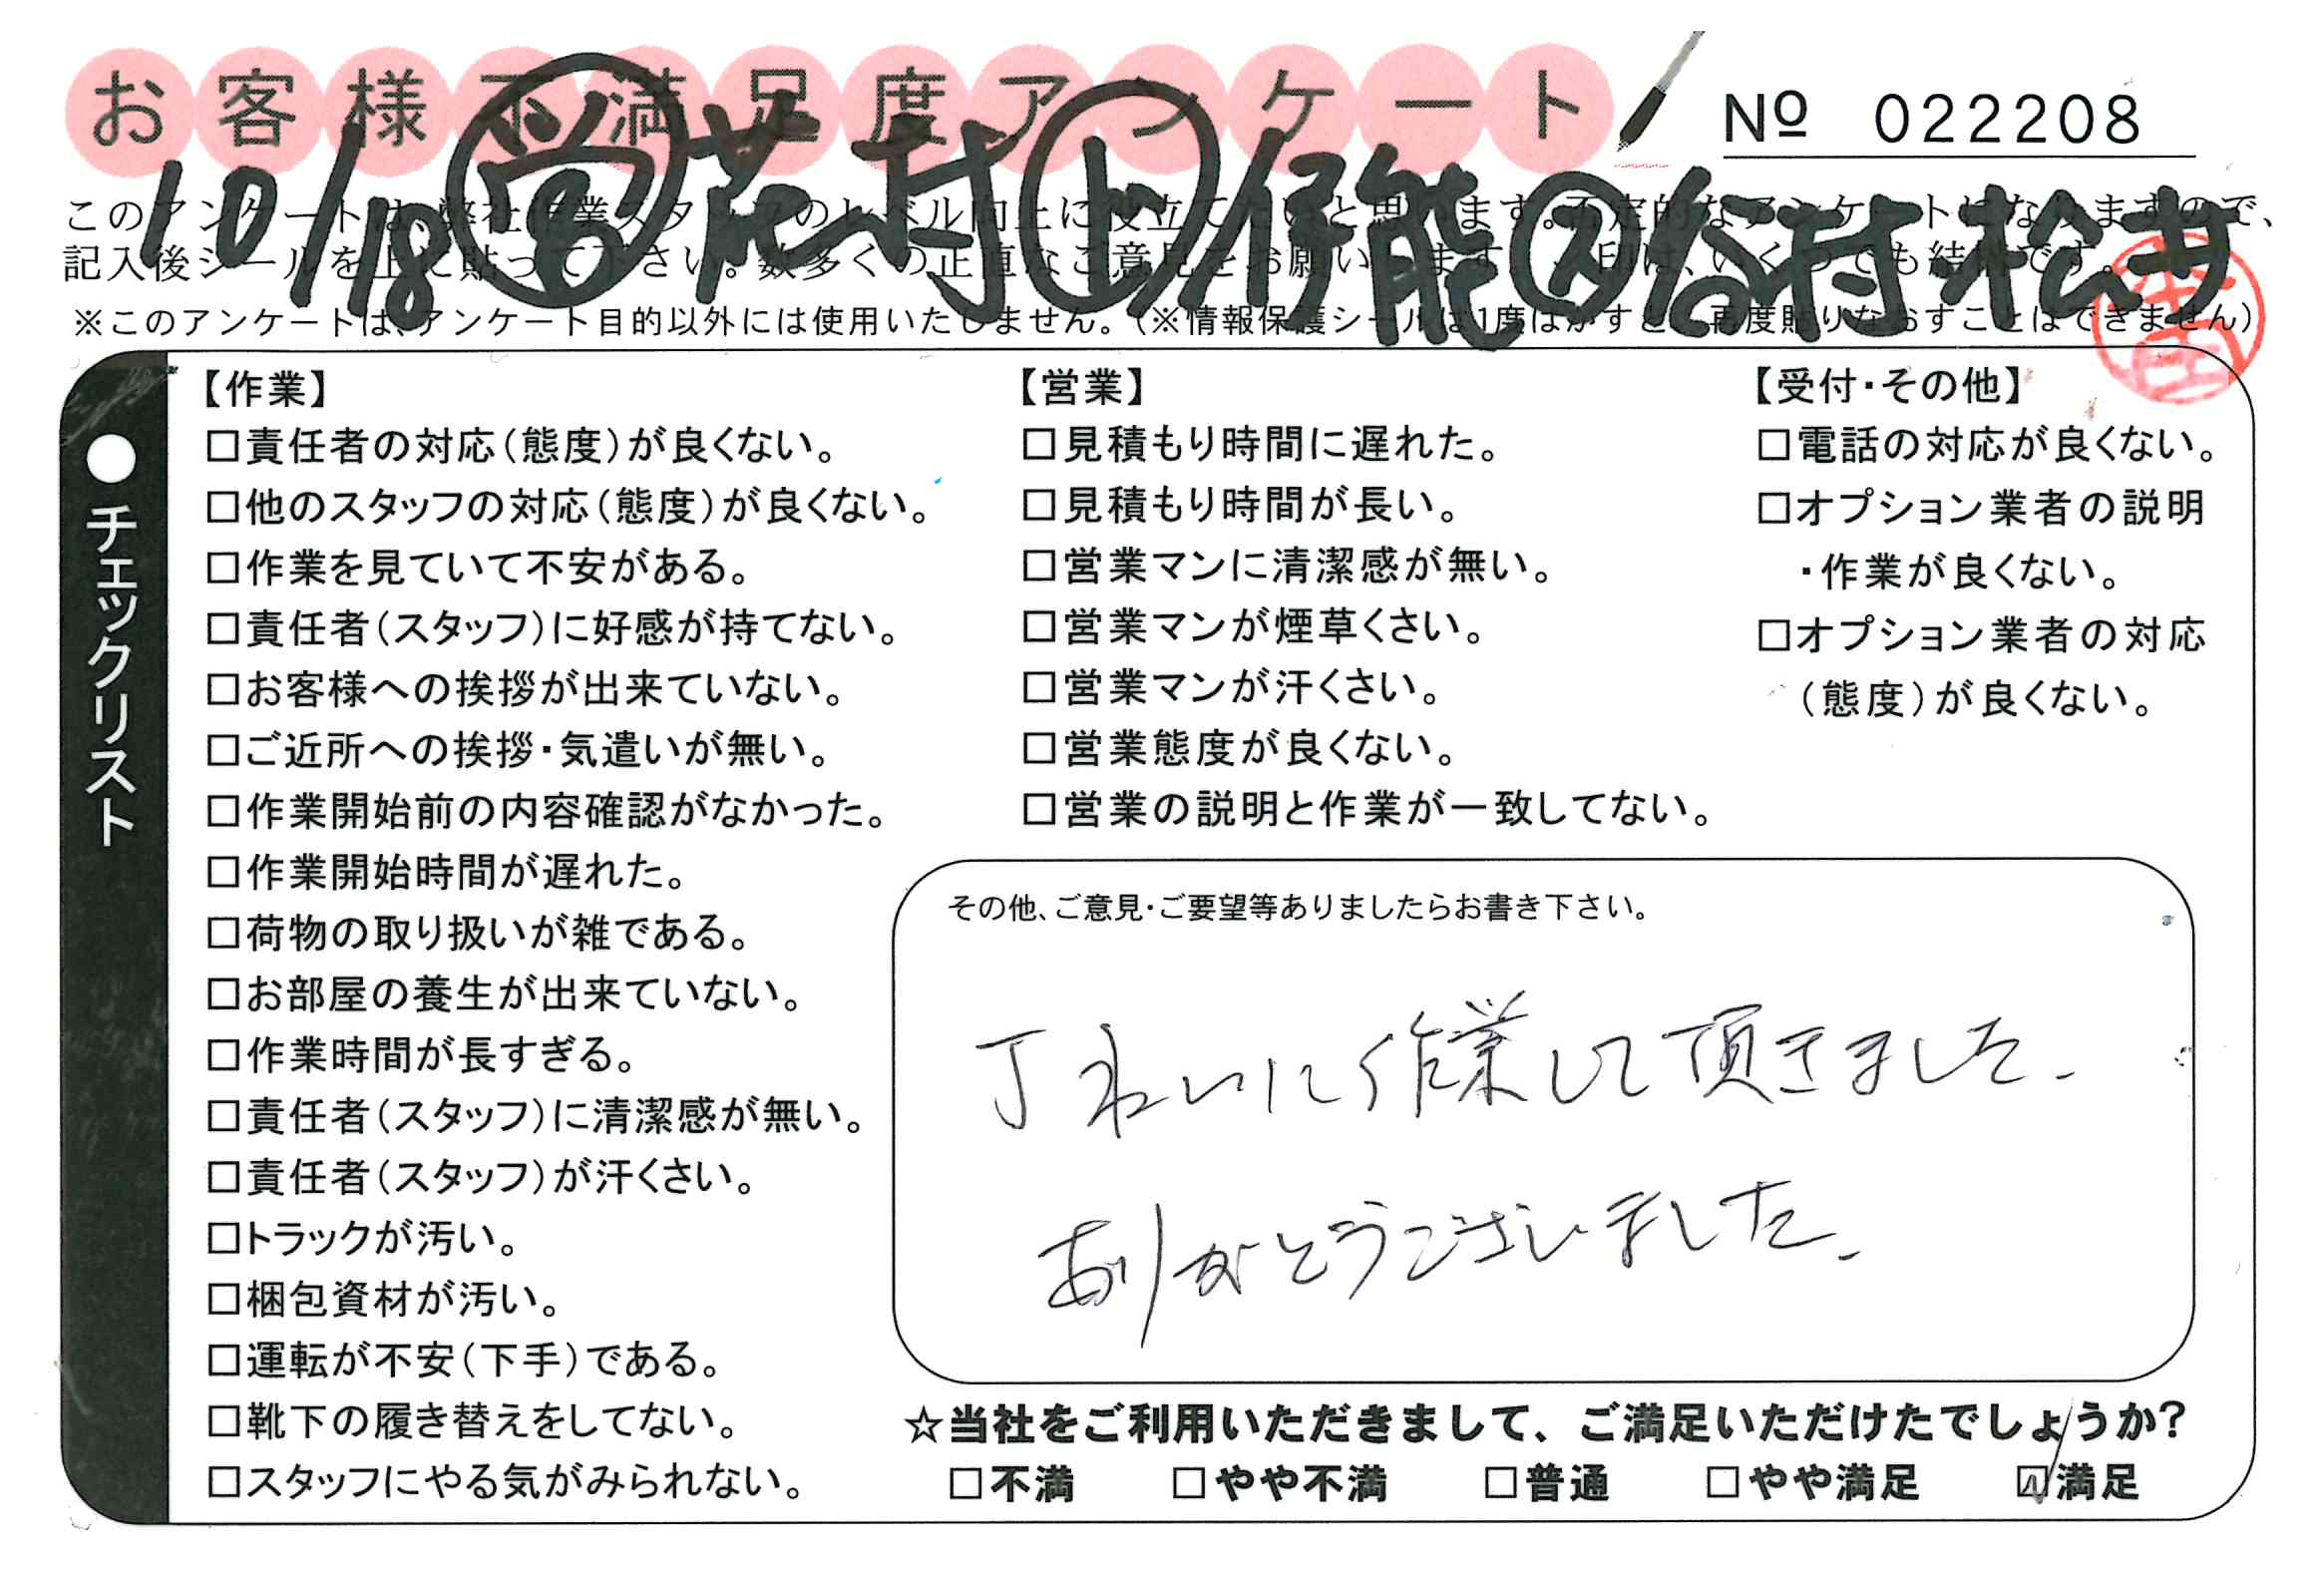 お客様不満足度アンケート
№ 022208
10/18 営 花村 ト 伊能 ス 谷村 松井
このアンケートは、弊社作業スタッフのレベル向上に役立てたいと思います。否定的なアンケートになりますので、
記入後シールを上に貼って下さい。数多くの正直なご意見をお願いします。✓印は、いくつでも結構です。
※このアンケートは、アンケート目的以外には使用いたしません。（※情報保護シールは1度はがすと、再度貼りなおすことはできません）
●チェックリスト
【作業】
□責任者の対応（態度）が良くない。
□他のスタッフの対応（態度）が良くない。
□作業を見ていて不安がある。
□責任者（スタッフ）に好感が持てない。
□お客様への挨拶が出来ていない。
□ご近所への挨拶・気遣いが無い。
□作業開始前の内容確認がなかった。
□作業開始時間が遅れた。
□荷物の取り扱いが雑である。
□お部屋の養生が出来ていない。
□作業時間が長すぎる。
□責任者（スタッフ）に清潔感が無い。
□責任者（スタッフ）が汗くさい。
□トラックが汚い。
□梱包資材が汚い。
□運転が不安（下手）である。
□靴下の履き替えをしてない。
□スタッフにやる気がみられない。
【営業】
□見積もり時間に遅れた。
□見積もり時間が長い。
□営業マンに清潔感が無い。
□営業マンが煙草くさい。
□営業マンが汗くさい。
□営業態度が良くない。
□営業の説明と作業が一致してない。
【受付・その他】
□電話の対応が良くない。
□オプション業者の説明
・作業が良くない。
□オプション業者の対応
（態度）が良くない。
その他、ご意見・ご要望等ありましたらお書き下さい。
丁ねいに作業して頂きました。
ありがとうございました。
☆当社をご利用いただきまして、ご満足いただけたでしょうか？
□不満 □やや不満 □普通 □やや満足 ☑満足